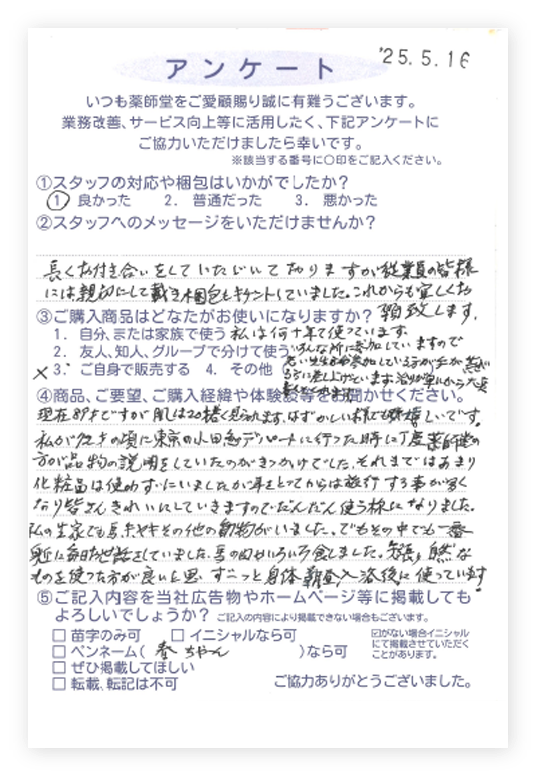 '25.5.16
アンケート
いつも薬師堂をご愛顧賜り誠に有難うございます。
業務改善、サービス向上等に活用したく、下記アンケートに
ご協力いただけましたら幸いです。
※該当する番号に○印をご記入ください。
①スタッフの対応や梱包はいかがでしたか?
1 良かった 2. 普通だった 3. 悪かった
②スタッフへのメッセージをいただけませんか?
長くお付き合いをしていただいておりますが従業員の皆様
には親切にして戴き梱包もキチントしていました。これからも宜しくお
願致します。
③ご購入商品はどなたがお使いになりますか?
1. 自分、または家族で使う 私は何十年も使っています。
2. 友人、知人、グループで分けて使う いろんな所に参加していますので
× 3. ご自身で販売する 4. その他
④商品、ご要望、ご購入経緯や体験談等をお聞かせください。
現在89才ですが肌は20若く見られます。はずかしい様でも嬉しいです。
私が 才の頃に東京の小田急デパートに行った時に丁度薬師堂の
方が品物の説明をしていたのがきっかけでした。それまではあまり
化粧品は使わずにいましたが年をとってからは旅行する事が多く
なり皆さんきれいにしていきますのでだんだん使う様になりました。
私の生家でも馬ややぎその他の動物がいました。でもその中でも一番
身近に毎日お世話をしていました。馬の いろいろ しました。 自然な
ものを使った方が良いと思 ずーっと身体 入浴後に使っています。
⑤ご記入内容を当社広告物やホームページ等に掲載しても
よろしいでしょうか? ご記入の内容により掲載できない場合もございます。
□ 苗字のみ可 □ イニシャルなら可
□ ペンネーム( 春ちゃん )なら可
☑がない場合イニシャル
にて掲載させていただく
ことがあります。
□ ぜひ掲載してほしい
□ 転載、転記は不可
ご協力ありがとうございました。